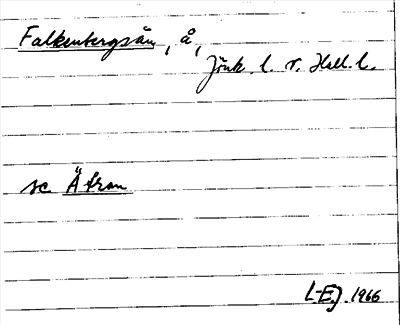 Falkenbergsån, å,
Jönk. l. o. Hall. l.
se Ätran
L-EJ. 1966